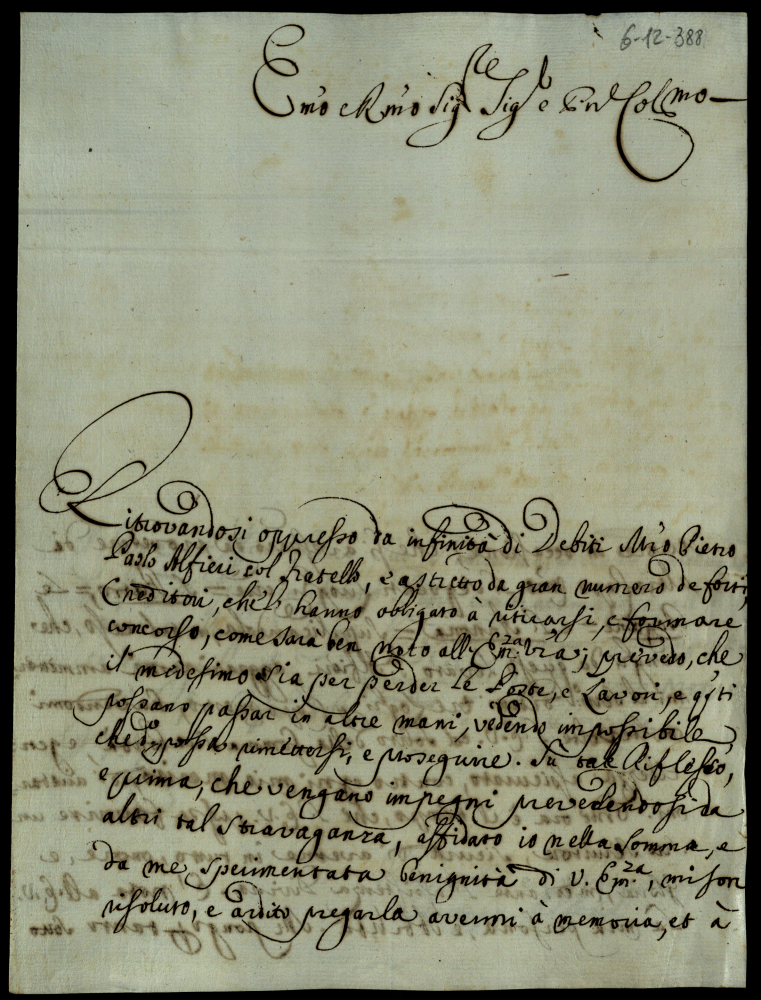 6-12-388
Em̃o e Rm̃o Sig.re Sig.r e Prñ Col.mo
Ritrovandosi oppresso da infinità di Debiti Mr̃o Pietro
Paolo Alfieri col fratello, e astretto da gran numero de forti
Creditori, che l'hanno obligato à ritirarsi, e formare
concorso, come sarà ben noto all'Em.za Vr̃a; prevedo, che
il medesimo sia per perder le Poste, e Lavori, e q̃sti
possano passar in altre mani, vedendo impossibile
che possa rimettersi, e proseguire. Sù tale Riflesso,
e prima, che vengano impegni prevedendosi da
altri tal stravaganza, affidato io nella somma, e
da me sperimentata benignità di V. Em.za, mi son
risoluto, e ardito pregarla avermi à memoria, et à